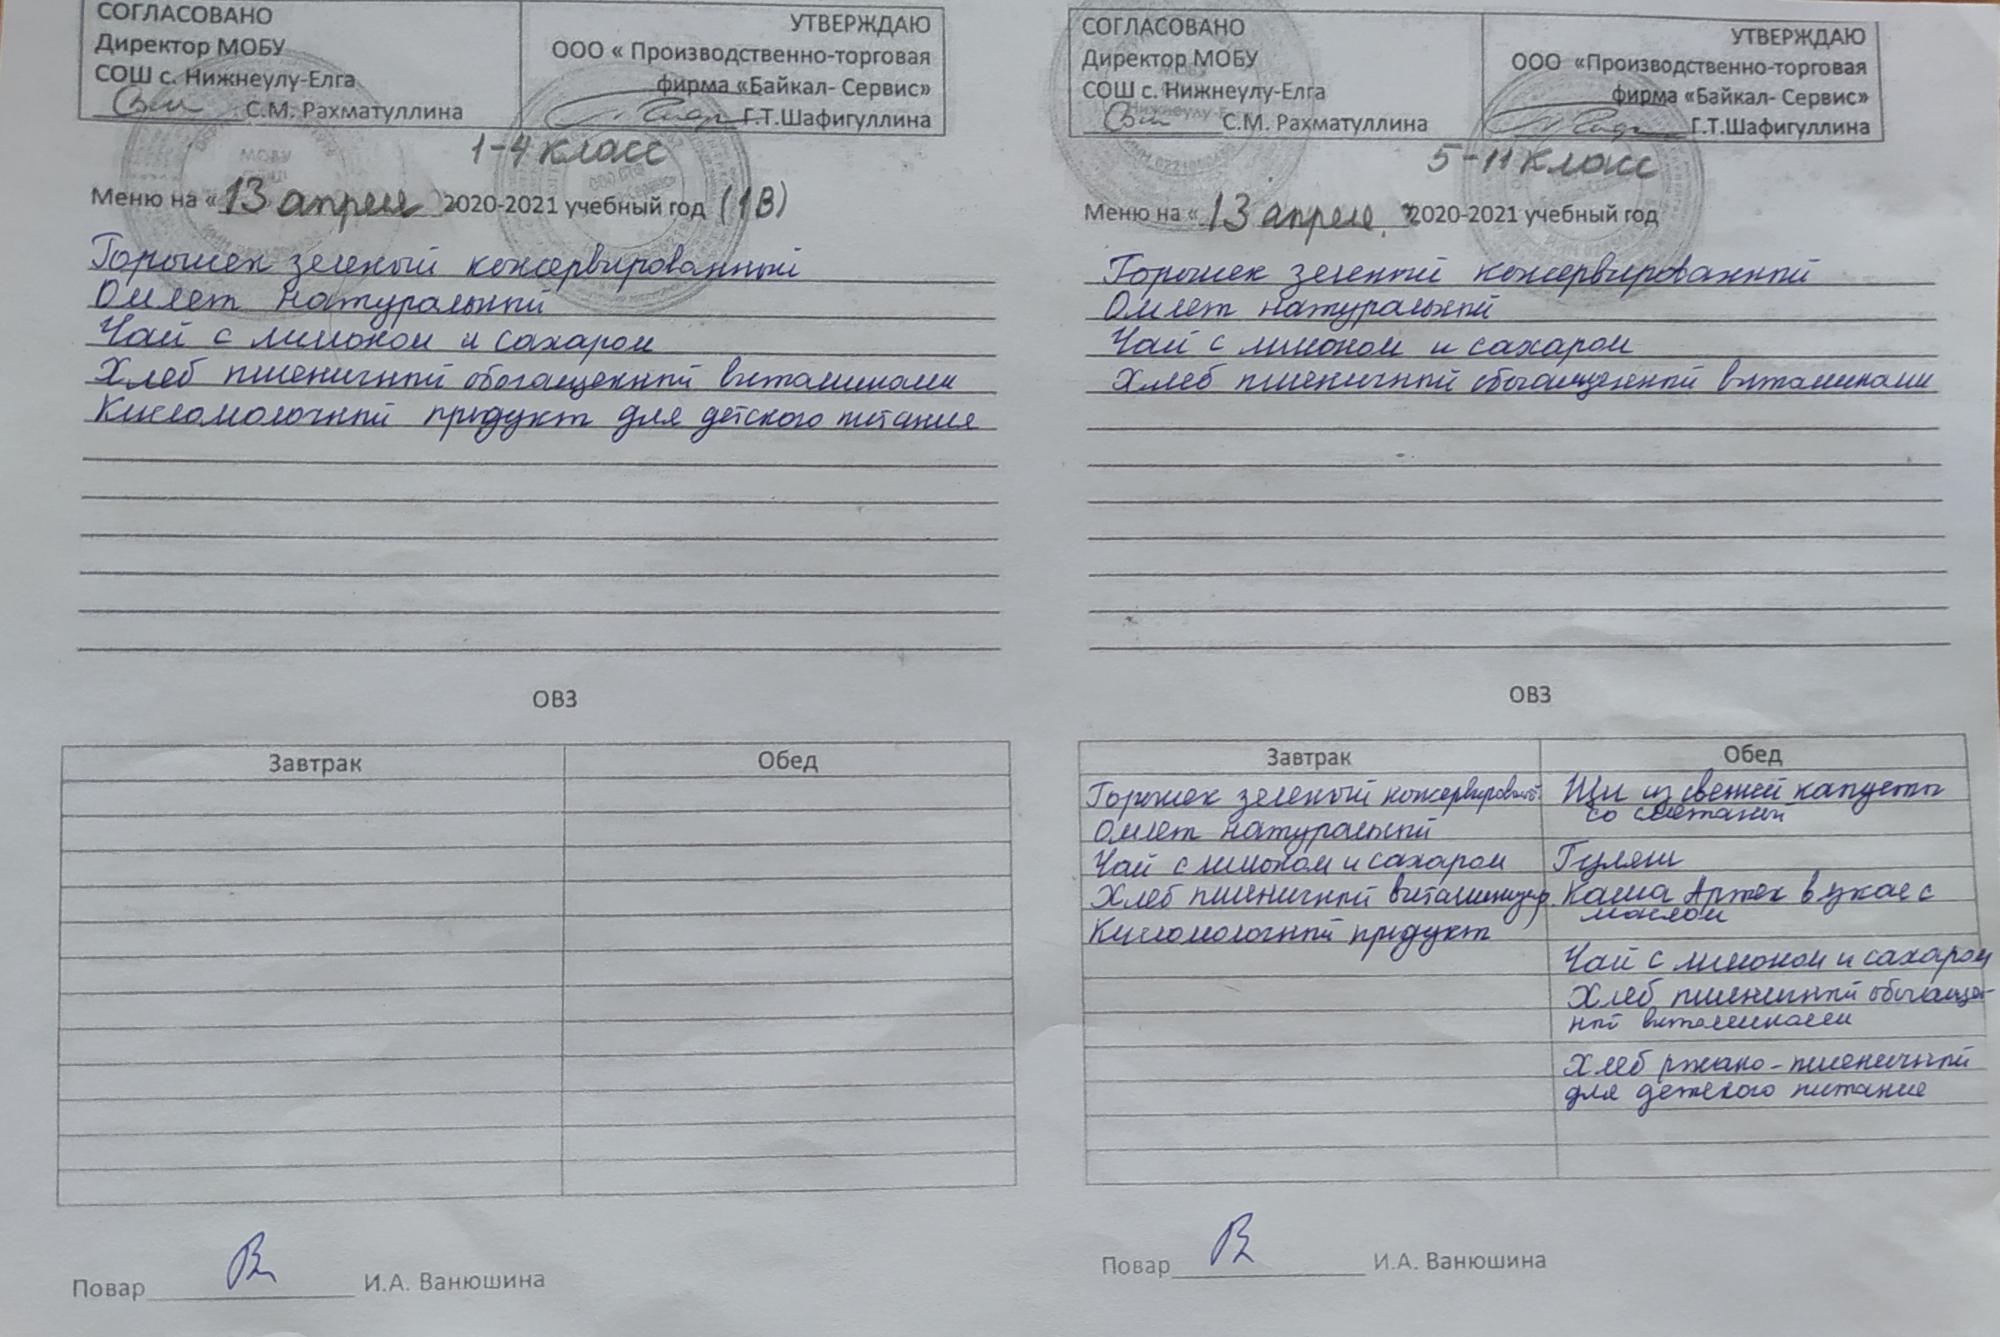 СОГЛАСОВАНО
Директор МОБУ
СОШ с. Нижнеулу-Елга
С.М. Рахматуллина
УТВЕРЖДАЮ
ООО « Производственно-торговая
фирма «Байкал- Сервис»
Г.Т.Шафигуллина
1-4 класс
Меню на « 13 апреля 2020-2021 учебный год (1В)
Горошек зеленый консервированный
Омлет натуральный
Чай с лимоном и сахаром
Хлеб пшеничный обогащенный витаминами
Кисломолочный продукт для детского питания
ОВЗ
Завтрак Обед
Повар И.А. Ванюшина
СОГЛАСОВАНО
Директор МОБУ
СОШ с. Нижнеулу-Елга
С.М. Рахматуллина
УТВЕРЖДАЮ
ООО «Производственно-торговая
фирма «Байкал- Сервис»
Г.Т.Шафигуллина
5-11 класс
Меню на « 13 апреля 2020-2021 учебный год
Горошек зеленый консервированный
Омлет натуральный
Чай с лимоном и сахаром
Хлеб пшеничный обогащенный витаминами
ОВЗ
Завтрак Обед
Горошек зеленый
Омлет натуральный
Чай с лимоном и сахаром
Хлеб пшеничный
Кисломолочный продукт
Щи из свежей капусты
со сметаной
Гуляш
Каша Артек вязкая с
маслом
Чай с лимоном и сахаром
Хлеб пшеничный обогащен-
ный витаминами
Хлеб ржано-пшеничный
для детского питание
Повар И.А. Ванюшина